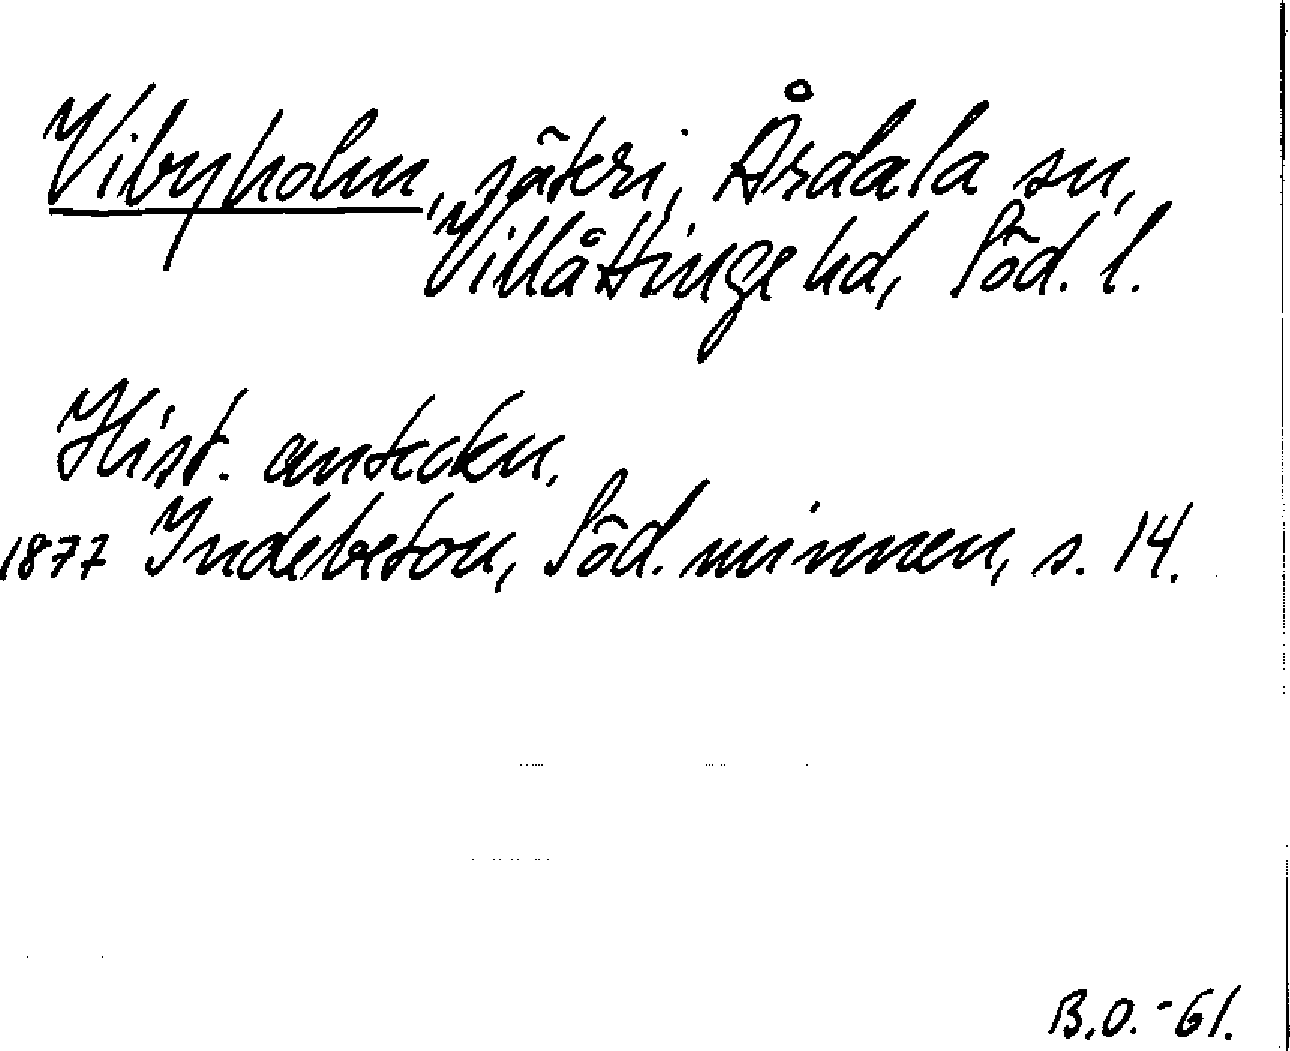 Vibyholm, säteri, Årdala sn,
Villåttinge hd, Söd. l.
Hist. anteckn.
1877 Indebetou, Söd. minnen, s. 14.
B.O. -61.